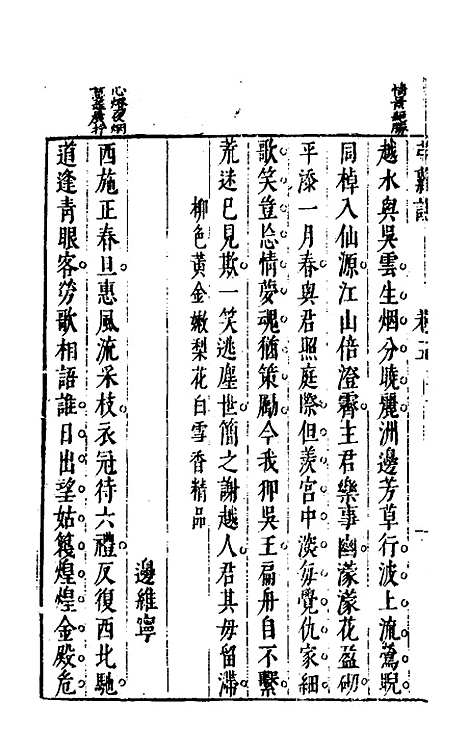 情景絕勝
越水與吳雲生烟分曉麗洲邊芳草行波上流鶯睨
同棹入仙源江山倍澄霽主君樂事幽濛濛花盈砌
平添一月春與君照庭際但羨宮中淡每覺仇家細
歌笑豈忘情夢魂猶策勵今我仰吳王扁舟自不繫
荒迷已見欺一笑逃塵世簡之謝越人君其毋留滯
柳色黃金嫩梨花白雪香精品
邊維寧
心燈夜炯
西施正春旦惠風流采枝衣冠待六禮反復西北馳
道逢青眼客勞歌相語誰日出望姑煌煌金殿危